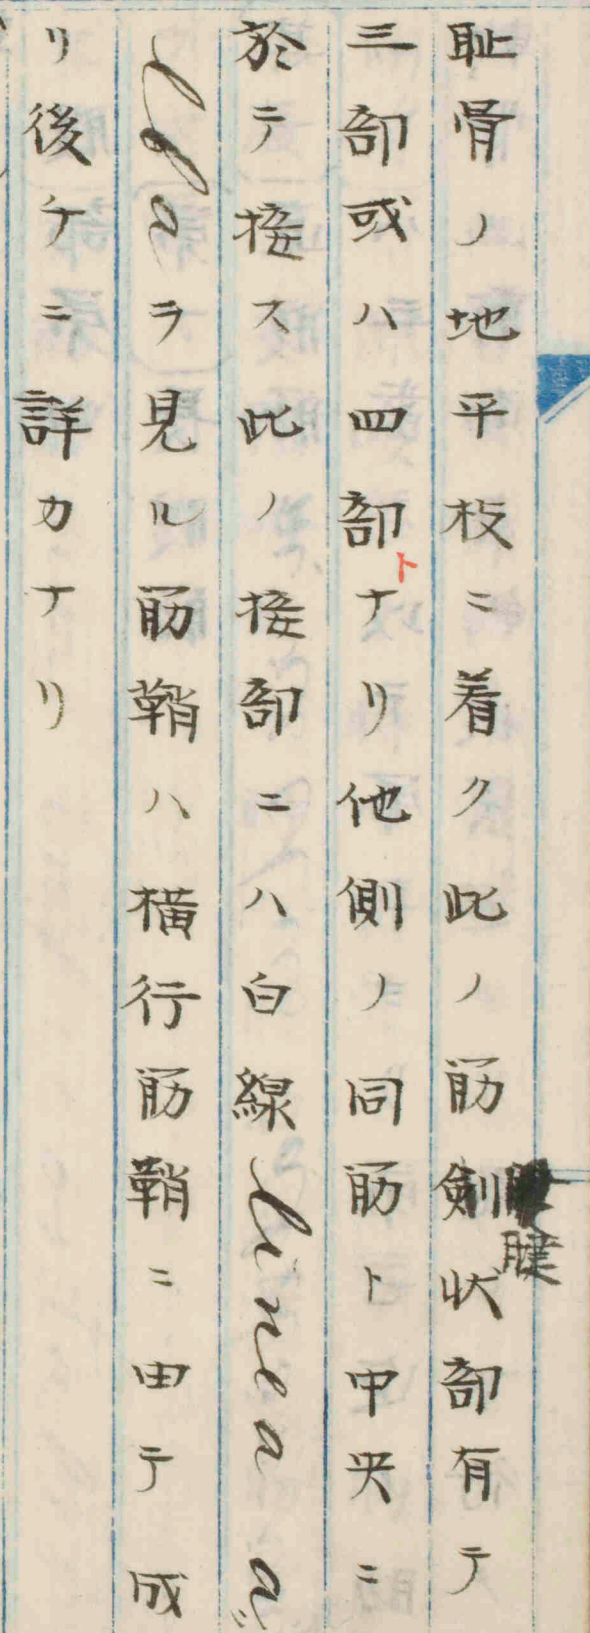 耻骨ノ地平枝ニ着ク此ノ筋劍状部有テ
腱
三部或ハ四部トナリ他側ノ同筋ト中央ニ
於テ接ス此ノ接部ニハ白線linea a
lbaヲ見ル筋鞘ハ横行筋鞘ニ由テ成
リ後チニ詳カナリ